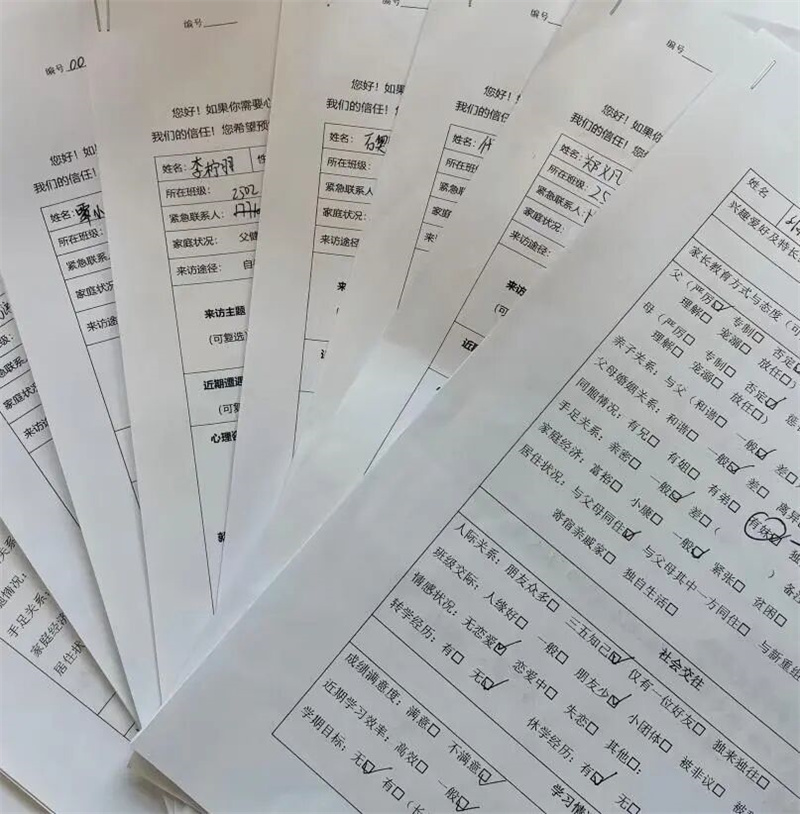 编号
编号 00
您好！如果你需要心
我们的信任！您希望预
姓名：李柠羽 性
所在班级： 2502
紧急联系人：
家庭状况： 父健
来访途径： 自
来访主题
(可复选)
近期遭遇
(可复选)
心理咨
您好！如
我们的信任
姓名：覃小
所在班级：
紧急联系
家庭状况
来访途
您好！如果
我们的信任！您
姓名：
所在班级：
紧急联系人
家庭状况：
来访途径：
编号
您好！如
我们的信任！
姓名：
所在班
紧急联
家庭
编号
您好！如果你
我们的信任！您
姓名：郑义凡
所在班级： 25
紧急联系人：
家庭状况：
来访途径：
来访
近期
姓名
兴趣爱好及特长
家长教育方式与态度（可
父（严厉☑ 专制□ 否定
理解□ 宠溺□ 放任□）
母（严厉□ 专制□ 否定☑ 惩
理解□ 宠溺□ 放任□）
亲子关系：与父（和谐□ 一般☑ 差
父母婚姻关系：和谐□ 一般☑ 差□ 离异
同胞情况：有兄□ 有姐□ 有弟□ 有妹☑ 独
手足关系：亲密□ 一般☑ 差□（ ）备注
家庭经济：富裕□ 小康□ 一般☑ 紧张□ 贫困□
居住状况：与父母同住☑ 与父母其中一方同住□ 与新重组
寄宿亲戚家□ 独自生活□
社会交往
人际关系：朋友众多□ 三五知己☑ 仅有一位好友□ 独来独往□
班级交际：人缘好□ 一般□ 朋友少☑ 小团体□ 被非议□ 被
情感状况：无恋爱☑ 恋爱中□ 失恋□ 其他□：
转学经历：有□ 无☑ 休学经历：有☑ 无□
学习情
成绩满意度：满意□ 不满意☑
近期学习效率：高效□ 一般☑
学期目标：无☑ 有□（长
家庭状况
来访途
手足关系
家庭经济
居住状